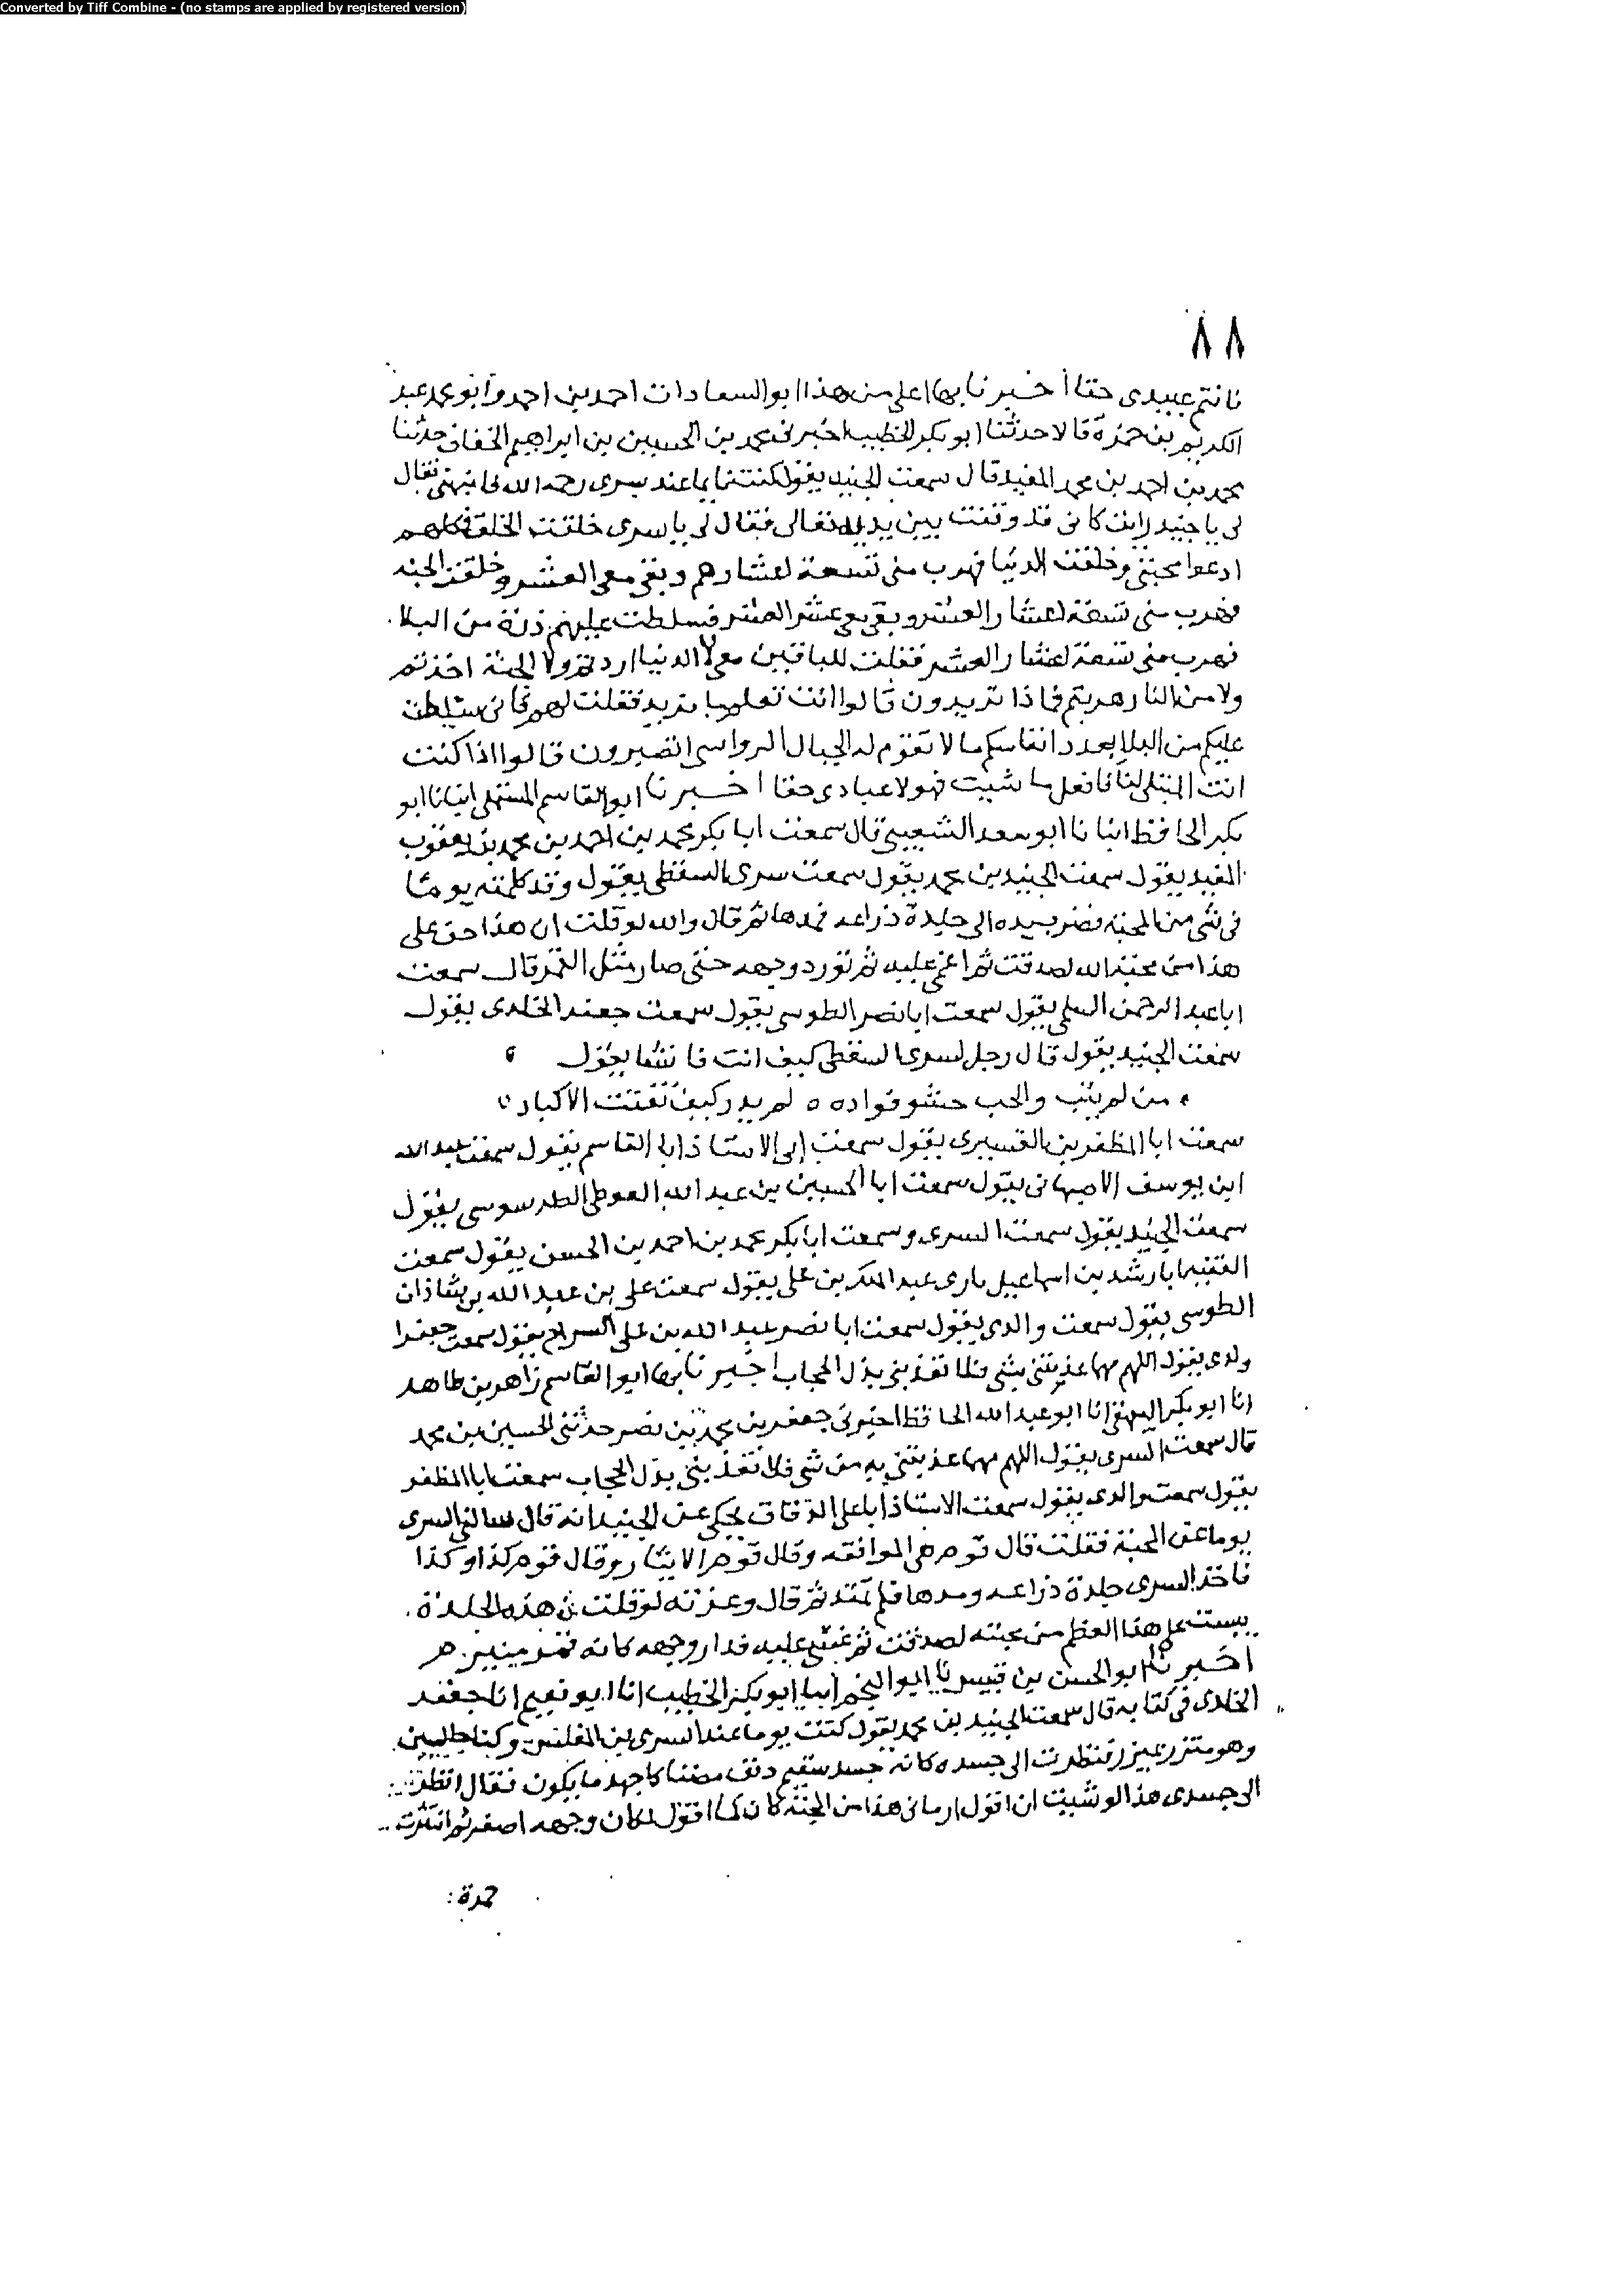 Converted by Tiff Combine - (no stamps are applied by registered version)
٨٨
فانتم عبيدى حقا أخبرنا بها اعلى من هذا ابو السعادات احمد بن احمد وابو محمد عبد
الكريم بن حمزة قالا حدثنا ابو بكر الخطيب اخبرنى محمد بن الحسين بن ابراهيم الخفاف حدثنا
محمد بن احمد بن محمد المفيد قال سمعت الجنيد يقول كنت نايما عند سرى رحمه الله فانبهنى فقال
لى يا جنيد رايت كانى قد وقفت بين يديه تعالى فقال لى يا سرى خلقت الخلق فكلهم
ادعوا محبتى وخلقت الدنيا فهرب منى تسعة اعشارهم وبقى معى العشر وخلقت الجنه
فهرب منى تسعة اعشار العشر وبقى معى عشر العشر فسلطت عليهم ذرة من البلا
فهرب منى تسعة اعشار العشر فقلت للباقين معى لا الدنيا اردتم ولا الجنة اخذتم
ولا من النار هربتم فماذا تريدون قالوا انت تعلم ما نريد فقلت لهم فانى مسلط
عليكم من البلا بعدد انفاسكم ما لا تقوم له الجبال الرواسى اتصبرون قالوا اذا كنت
انت المبتلى لنا فافعل ما شيت فهولا عبادى حقا اخبرنا ابو القاسم المستملى انبانا ابو
بكر الحافظ انبانا ابو سعد الشعيبى قال سمعت ابا بكر محمد بن احمد بن محمد بن يعقوب
المفيد يقول سمعت الجنيد بن محمد يقول سمعت سرى السقطى يقول وقد كلمته يوما
فى شى من المحبه فضرب بيده الى جلدة ذراعه فمدها ثم قال والله لو قلت ان هذا جف على
هذا من محبة الله لصدقت ثم اغمى عليه ثم تورد وجهه حتى صار مثل القمر قال سمعت
ابا عبد الرحمن السلمى يقول سمعت ابا نصر الطوسى يقول سمعت جعفر الخلدى يقول
سمعت الجنيد يقول قال رجل لسرى السقطى كيف انت فانشا يقول
من لم يبت والحب حشو فواده ه لم يدر كيف تفتت الاكباد
سمعت ابا المظفر بن القشيرى يقول سمعت ابى الاستاذ ابا القاسم يقول سمعت عبد الله
ابن يوسف الاصبهانى يقول سمعت ابا الحسين بن عبد الله الطرسوسى يقول
سمعت الجنيد يقول سمعت السرى وسمعت ابا بكر محمد بن احمد بن الحسن يقول سمعت
الفقيه ابا رشد بن اسماعيل عبد الملك بن على يقول سمعت على بن عبد الله بن شاذان
الطوسى يقول سمعت والدى يقول سمعت ابا نصر عبد الله بن على السراج يقول سمعت جعفرا
ولدى يقول اللهم مهما عذبتنى بشى فلا تعذبنى بذل الحجاب اخبرنا بها ابو القاسم زاهر بن طاهر
انا ابو بكر البيهقى انا ابو عبد الله الحافظ اخبرنى جعفر بن محمد بن نصر حدثنى الحسين بن محمد
قال سمعت السرى يقول اللهم مهما عذبتنى به من شى فلا تعذبنى بذل الحجاب سمعت ابا المظفر
يقول سمعت والدى يقول سمعت الاستاذ ابا على الدقاق يحكى عن الجنيد انه قال سالنى السرى
يوما عن المحبة فقلت قال قوم هى الموافقه وقال قوم الايثار وقال قوم كذا وكذا
فاخذ السرى جلدة ذراعه ومدها فلم تمتد ثم قال وعزته لو قلت ان هذه الجلدة
يبست على هذا العظم من محبته لصدقت ثم غشى عليه فدار وجهه كانه قمر
اخبرنا ابو الحسن بن قبيس نا ابو النجم ابنا ابو بكر الخطيب انا ابو نعيم انا جعفر
الخلدى فى كتابه قال سمعت الجنيد بن محمد يقول كنت يوما عند السرى بن المغلس وكنا جالسين
وهو متزر بميزر فنظرت الى جسده كانه جسد سقيم دنف مضنا كاجهد ما يكون فقال انظر
الى جسدى هذا لو شيت ان اقول ان ما بى هذا من المحبة كان كما اقول وكان وجهه اصفر ثم اشرب
حمرة